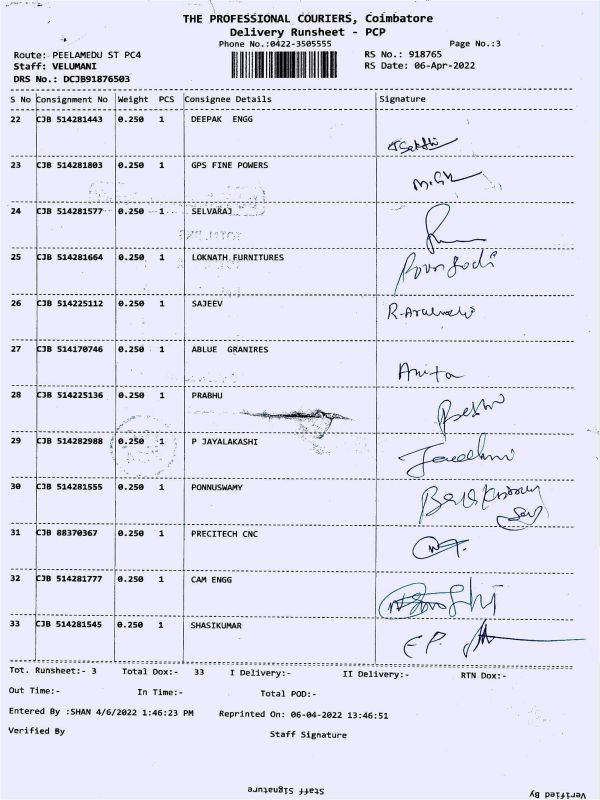 THE PROFESSIONAL COURIERS, Coimbatore
Delivery Runsheet - PCP
Phone No.:0422-3505555 Page No.:3
Route: PEELAMEDU ST PC4 RS No.: 918765
Staff: VELUMANI RS Date: 06-Apr-2022
DRS No.: DCJB91876503
S No Consignment No Weight PCS Consignee Details Signature
22 CJB 514281443 0.250 1 DEEPAK ENGG
23 CJB 514281803 0.250 1 GPS FINE POWERS
24 CJB 514281577 0.250 1 SELVARAJ
25 CJB 514281664 0.250 1 LOKNATH FURNITURES
26 CJB 514225112 0.250 1 SAJEEV
27 CJB 514170746 0.250 1 ABLUE GRANIRES
Anita
28 CJB 514225136 0.250 1 PRABHU
29 CJB 514282988 0.250 1 P JAYALAKASHI
30 CJB 514281555 0.250 1 PONNUSWAMY
31 CJB 88370367 0.250 1 PRECITECH CNC
32 CJB 514281777 0.250 1 CAM ENGG
33 CJB 514281545 0.250 1 SHASIKUMAR
Tot. Runsheet:- 3 Total Dox:- 33 I Delivery:- II Delivery:- RTN Dox:-
Out Time:- In Time:- Total POD:-
Entered By :SHAN 4/6/2022 1:46:23 PM Reprinted On: 06-04-2022 13:46:51
Verified By Staff Signature
Staff Signature Verified By